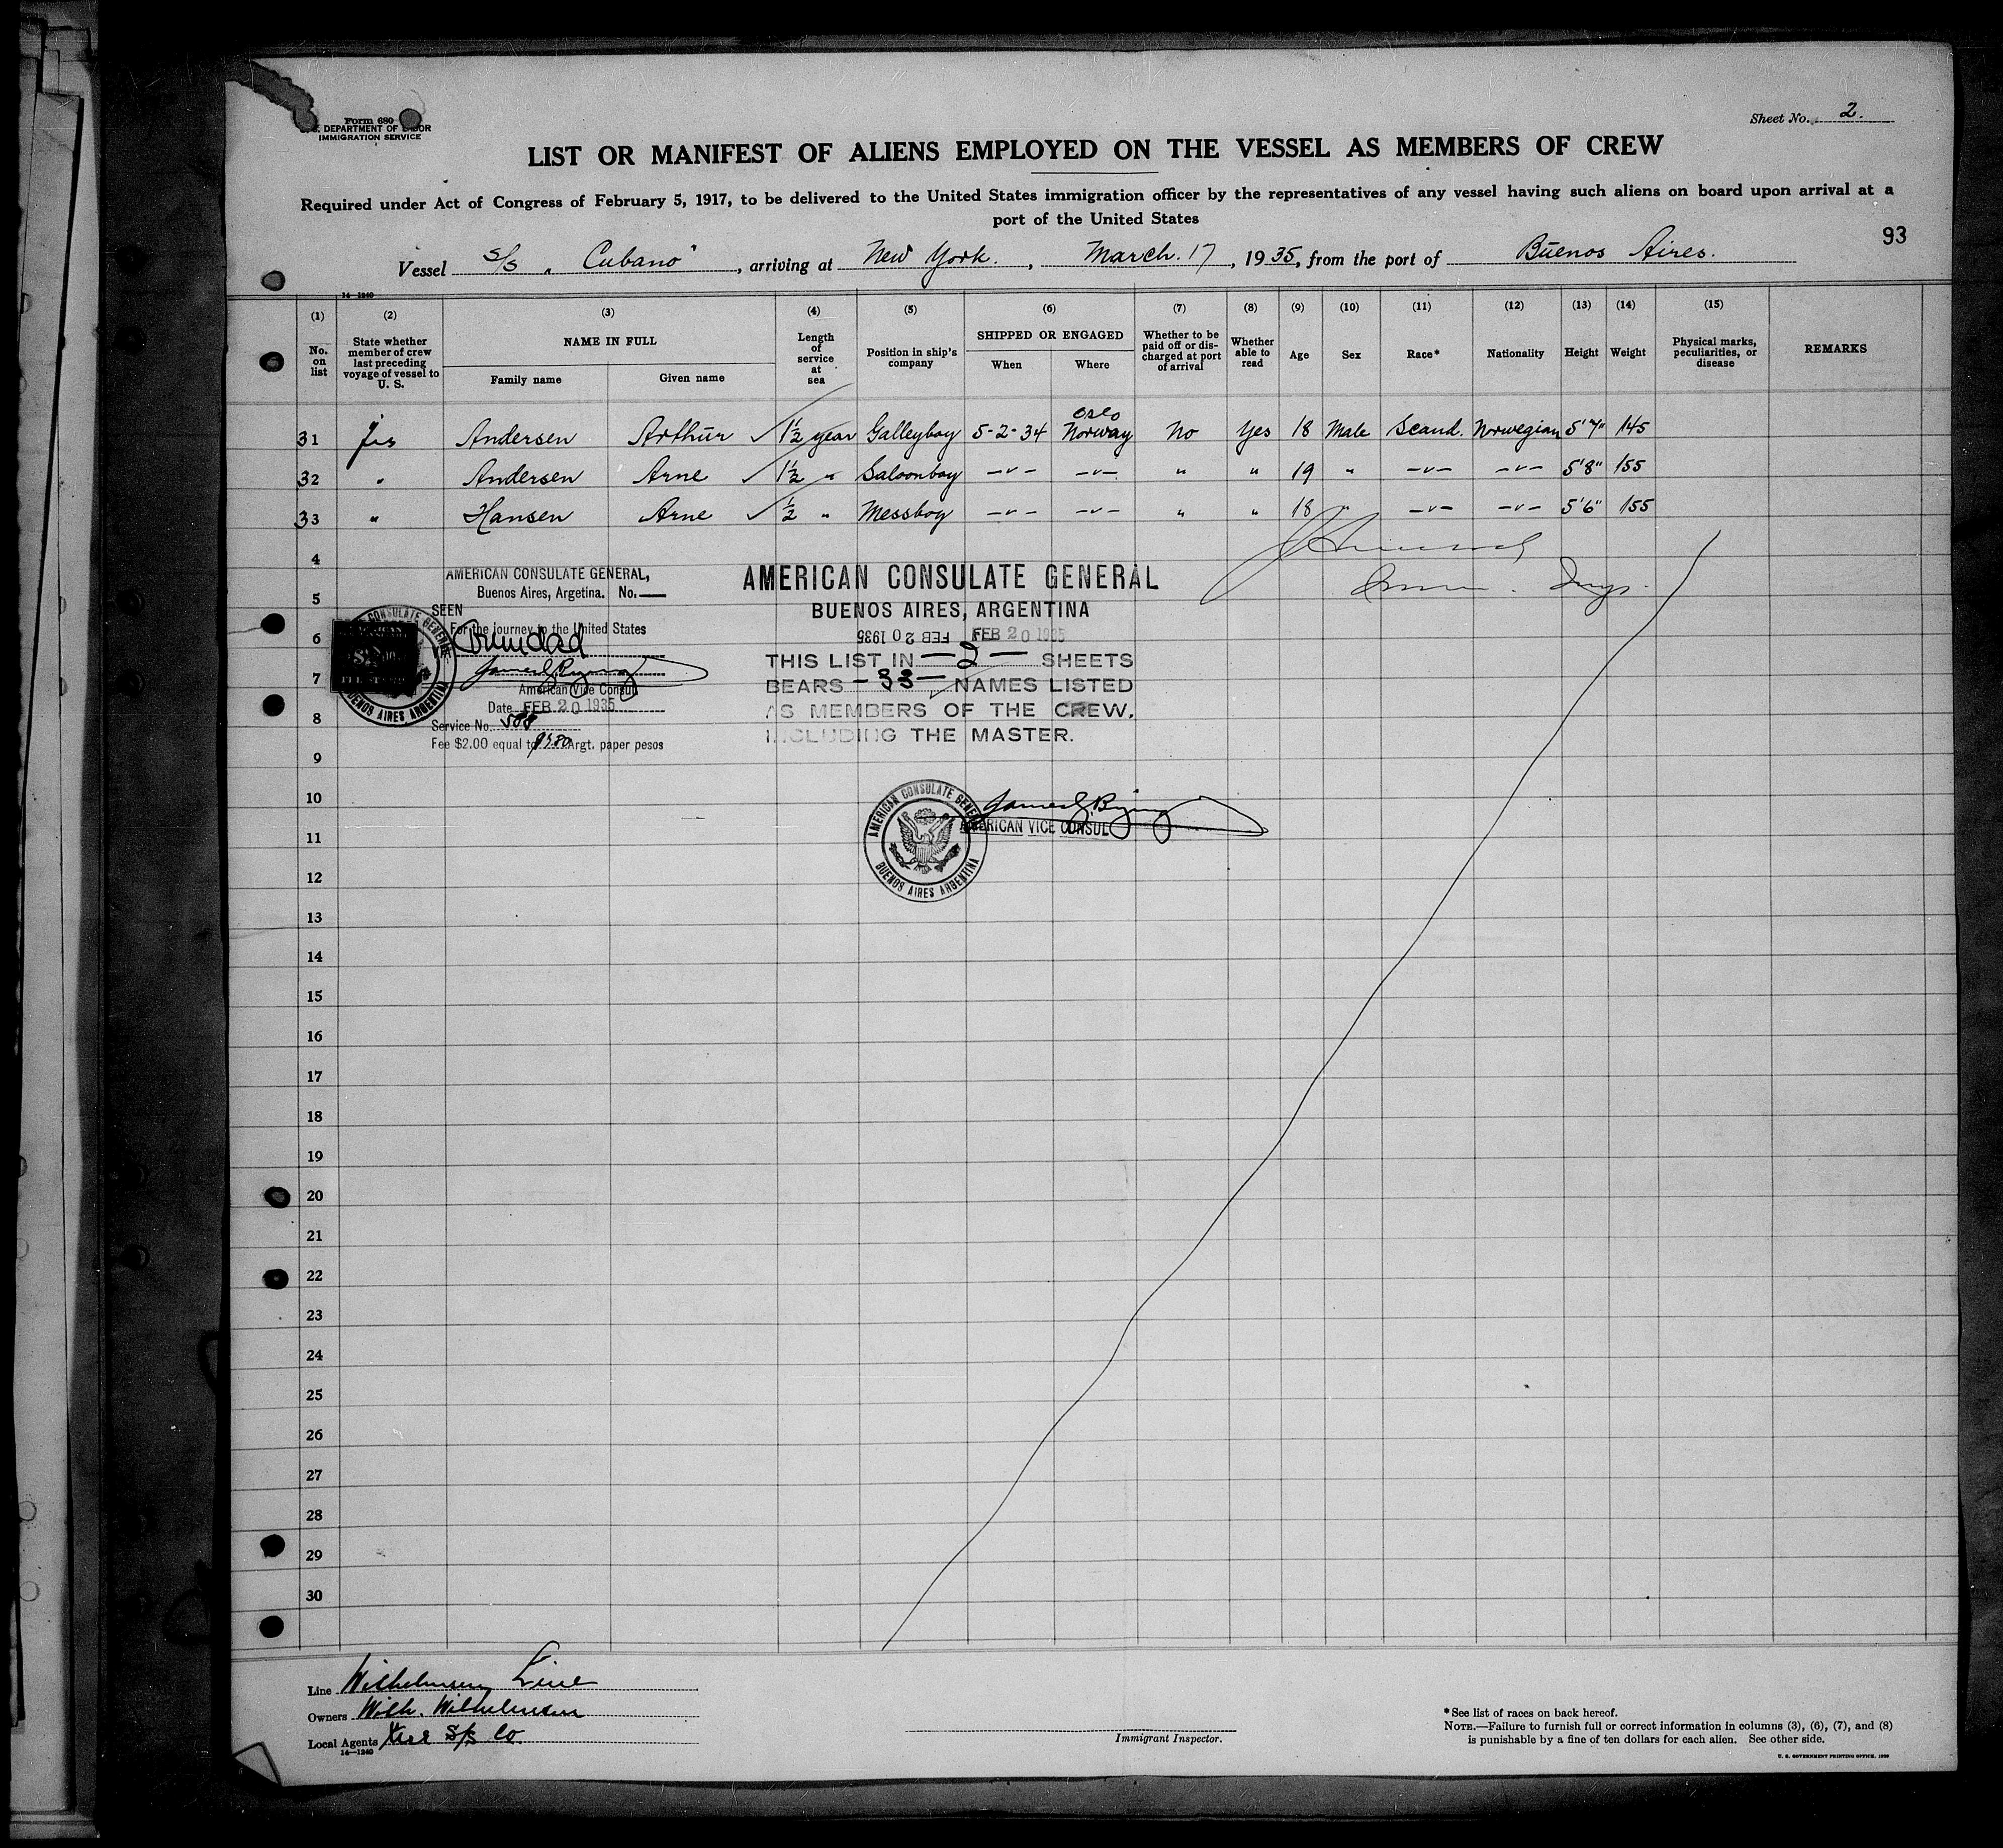 Form 680
DEPARTMENT OF LABOR
IMMIGRATION SERVICE
Sheet No. 2.
LIST OR MANIFEST OF ALIENS EMPLOYED ON THE VESSEL AS MEMBERS OF CREW
Required under Act of Congress of February 5, 1917, to be delivered to the United States immigration officer by the representatives of any vessel having such aliens on board upon arrival at a
port of the United States
93
Vessel S/S "Cubano", arriving at New York., March. 17, 1935, from the port of Buenos Aires.
14—1240
(1) (2) (3) (4) (5) (6) (7) (8) (9) (10) (11) (12) (13) (14) (15)
No. on list
State whether member of crew last preceding voyage of vessel to U. S.
NAME IN FULL
Family name Given name
Length of service at sea
Position in ship's company
SHIPPED OR ENGAGED
When Where
Whether to be paid off or discharged at port of arrival
Whether able to read
Age
Sex
Race*
Nationality
Height
Weight
Physical marks, peculiarities, or disease
REMARKS
Oslo
31 Yes Andersen Arthur 1½ year Galleyboy 5-2-34 Norway No Yes 18 Male Scand. Norwegian 5'7" 145
32 " Andersen Arne 1½ " Saloonboy -"- -"- " " 19 " -"- -"- 5'8" 155
33 " Hansen Arne ½ " Messboy -"- -"- " " 18 " -"- -"- 5'6" 155
4
5
6
7
8
9
10
11
12
13
14
15
16
17
18
19
20
21
22
23
24
25
26
27
28
29
30
AMERICAN CONSULATE GENERAL,
Buenos Aires, Argetina. No.
SEEN
For the journey to the United States
Trinidad
American Vice Consul
Date FEB 20 1935
Service No. 588
Fee $2.00 equal to Argt. paper pesos
AMERICAN CONSULATE GENERAL
BUENOS AIRES, ARGENTINA
FEB 20 1935 FEB 20 1935
THIS LIST IN —2— SHEETS
BEARS —33— NAMES LISTED
AS MEMBERS OF THE CREW,
INCLUDING THE MASTER.
AMERICAN VICE CONSUL
AMERICAN CONSULATE GENERAL
BUENOS AIRES ARGENTINA
Line Wilhelmsen Line
Owners Wilh. Wilhelmsen
Local Agents S/S Co
14—1240
Immigrant Inspector.
*See list of races on back hereof.
NOTE.—Failure to furnish full or correct information in columns (3), (6), (7), and (8)
is punishable by a fine of ten dollars for each alien. See other side.
U. S. GOVERNMENT PRINTING OFFICE